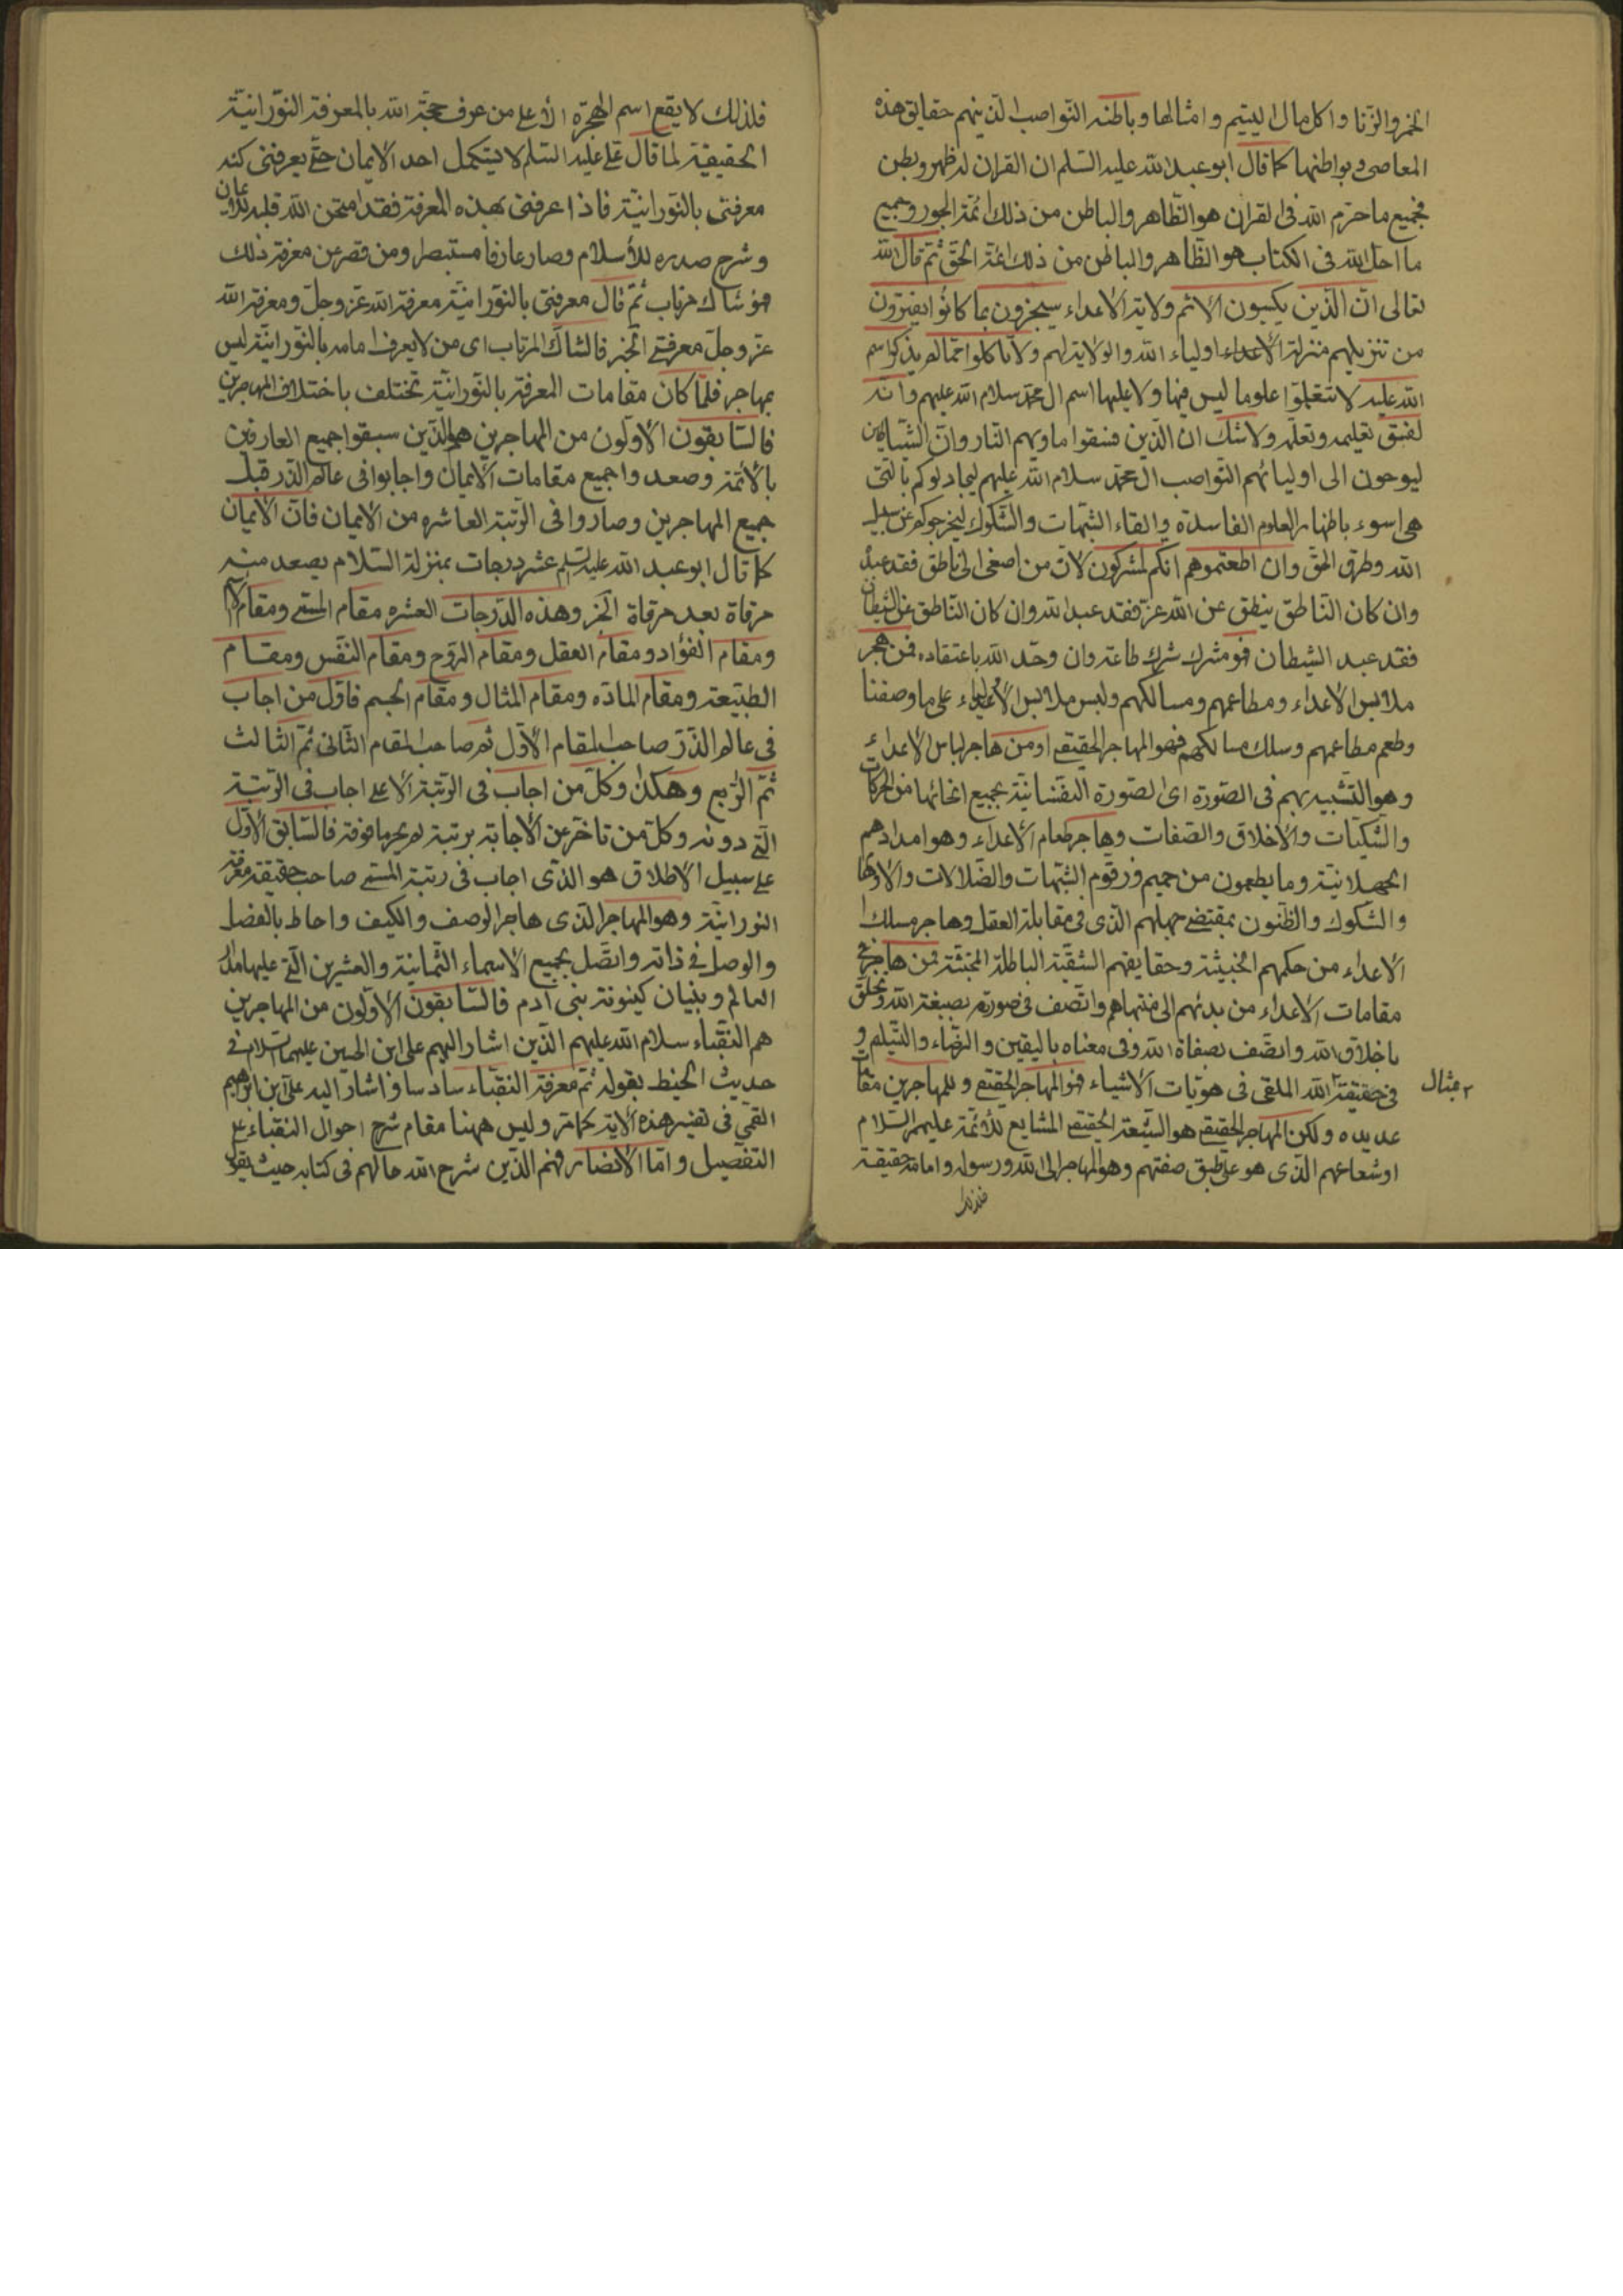 الخمر والزنا واكل مال اليتيم وامثالها وباطنه النواصب الذينهم حقايق هذه
المعاصی وبواطنها كما قال ابو عبد الله عليه السلم ان القران له ظهر وبطن
فجميع ما حرّم الله فى القران هو الظّاهر والباطن من ذلك ائمّة الجور وجميع
ما احل الله فى الكتاب هو الظّاهر والباطن من ذلك ائمّة الحقّ ثم قال الله
تعالى انّ الّذين يكسبون الاثم ولاية الاعداء سيجزون بما كانوا يقترفون
من تنزيلهم منزلة الاعداء اولياء الله والولاية لهم ولا تاكلوا ممّا لم يذكر اسم
الله عليه لا تتعلّموا علوما ليس فيها ولا عليها اسم ال محمّد سلام الله عليهم وانّه
لفسق تعليمه وتعلّمه ولا شكّ ان الّذين فسقوا ماويهم النّار وانّ الشّياطين
ليوحون الى اوليائهم النّواصب ال محمّد سلام الله عليهم ليجادلوكم بالّتى
هى اسوء باظهار العلوم الفاسدة والقاء الشّبهات والشّكوك ليخرجوكم عن سبيل
الله وطرق الحقّ وان اطعتموهم انكم لمشركون لانّ من اصغى الى ناطق فقد عبده
وان كان النّاطق ينطق عن الله عزّ فقد عبد الله وان كان النّاطق عن الشيطان
فقد عبد الشيطان فهو مشرك شرك طاعة وان وحّد الله باعتقاده فمن هجر
ملابس الاعداء ومطاعمهم ومسالكهم ولبس ملابس الاولياء على ما وصفنا
وطعم مطاعمهم وسلك مسالكهم فهو المهاجر الحقيقے اومن هاجر لباس الاعداء
وهو التّشبيه بهم فى الصّورة اى الصّورة النفسانيّة بجميع انحائها من الحركات
والسّكنات والاخلاق والصّفات وهاجر طعام الاعداء وهو امدادهم
الجهلانيّة وما يطعمون من حميم وزقوم الشبّهات والضّلالات والاوهام
والشكوك والظّنون بمقتضے جهلهم الّذى فى مقابلة العقل وهاجر مسلك
الاعداء من حكمهم الخبيثة وحقايقهم الشقيّة الباطلة المجتثّة فمن هاجر
مقامات الاعداء من بدئهم الى منتهاهم واتّصف فى صورته بصبغة الله وتخلّق
باخلاق الله واتّصف بصفاة الله وفى معناه باليقين والرّضاء والتّسلم و
فى حقيقته الله الملقى فى هويّات الاشياء فهو المهاجر الحقيقے وللمهاجرين مقامات
بمثال
عديده ولكن المهاجر الحقيقے هو الشّيعة الحقيقے المشايع للائمّة عليهم السّلام
او شعاعهم الّذى هو على طبق صفتهم وهو المهاجر الى الله ورسوله وامامه حقيقة
فلذلك
فلذلك لا يقع اسم الهجرة الّا على من عرف حجّة الله بالمعرفة النّورانيّة
الحقيقيّة لما قال علے عليه السّلم لا يستكمل احد الايمان حتّے يعرفنى كنه
معرفتى بالنّورانيّة فاذا عرفنى بهذه المعرفة فقد امتحن الله قلبه للايمان
وشرح صدره للأسلام وصار عارفا مستبصرا ومن قصر عن معرفة ذلك
فهو شاك مرتاب ثمّ قال معرفتى بالنّورانيّة معرفة الله عزّ وجلّ ومعرفة الله
عزّ وجلّ معرفتے الخبر فالشاكّ المرتاب اى من لا يعرف امامه بالنّورانيّة ليس
بمهاجر فلمّا كان مقامات المعرفة بالنّورانيّة تختلف باختلاف المهاجرين
فالسّابقون الاوّلون من المهاجرين هم الّذين سبقوا جميع العارفين
بالأئمّة وصعدوا جميع مقامات الايمان واجابوا فى عالم الذّر قبل
جميع المهاجرين وصاروا فى الرّتبة العاشره من الايمان فانّ الايمان
كما قال ابو عبد الله عليه السّلم عشر درجات بمنزلة السّلام يصعد منه
مرقاة بعد مرقاة الخبر وهذه الدّرجات العشره مقام المسمّے ومقام الاسم
ومقام الفؤاد ومقام العقل ومقام الرّوح ومقام النّفس ومقام
الطبيّعة ومقام المادّه ومقام المثال ومقام الجسم فاوّل من اجاب
فى عالم الذّر صاحب المقام الاوّل ثم صاحب المقام الثّانى ثمّ الثّالث
ثمّ الرّابع وهكذا وكلّ من اجاب فى الرتبة الاعلے اجاب فى الرّتبة
الّتے دونه وكلّ من تاخّر عن الاجابة برتبة لم يحرما فوقه فالسّابق الاوّل
علے سبيل الاطلاق هو الذى اجاب فى رتبة المسمّے صاحب حقيقة معرفة
النورانيّة وهو المهاجر الّذى هاجر الوصف والكيف واحاط بالفصل
والوصل فے ذاته واتّصل بجميع الاسماء الثّمانية والعشرين الّتے عليها مدار
العالم وبنيان كينونة بنى آدم فالسّابقون الاوّلون من المهاجرين
هم النّقباء سلام الله عليهم الّذين اشار اليهم على ابن الحسين عليهما السّلام فے
حديث الخيط بقوله ثمّ معرفة النقبّاء سادسا واشار اليه علىّ ابن ابراهيم
القمّى فى تفسير هذه الاية كما مرّ وليس ههنا مقام شرح احوال النقباء علے
التفصيل وامّا الانصار فهم الّذين شرح الله حالهم فى كتابه حيث يقول